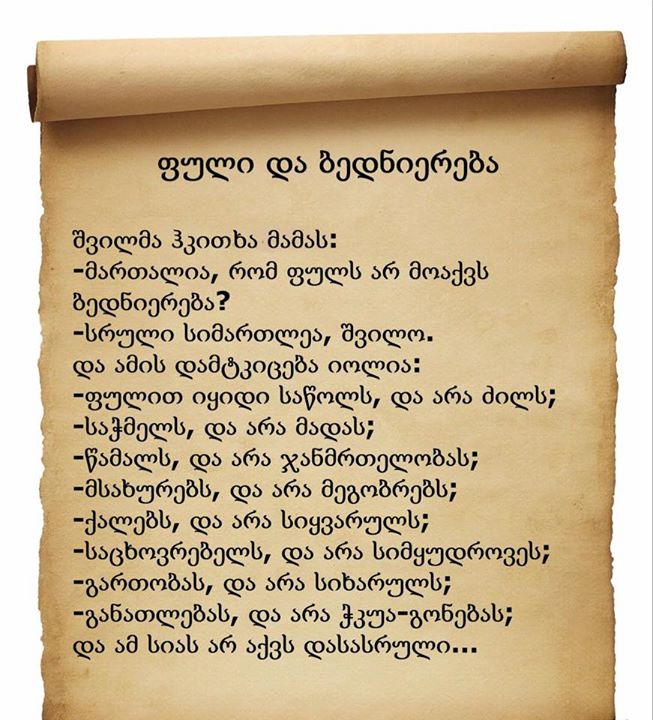 ფული და ბედნიერება
შვილმა ჰკითხა მამას:
-მართალია, რომ ფულს არ მოაქვს
ბედნიერება?
-სრული სიმართლეა, შვილო.
და ამის დამტკიცება იოლია:
-ფულით იყიდი საწოლს, და არა ძილს;
-საჭმელს, და არა მადას;
-წამალს, და არა ჯანმრთელობას;
-მსახურებს, და არა მეგობრებს;
-ქალებს, და არა სიყვარულს;
-საცხოვრებელს, და არა სიმყუდროვეს;
-გართობას, და არა სიხარულს;
-განათლებას, და არა ჭკუა-გონებას;
და ამ სიას არ აქვს დასასრული...